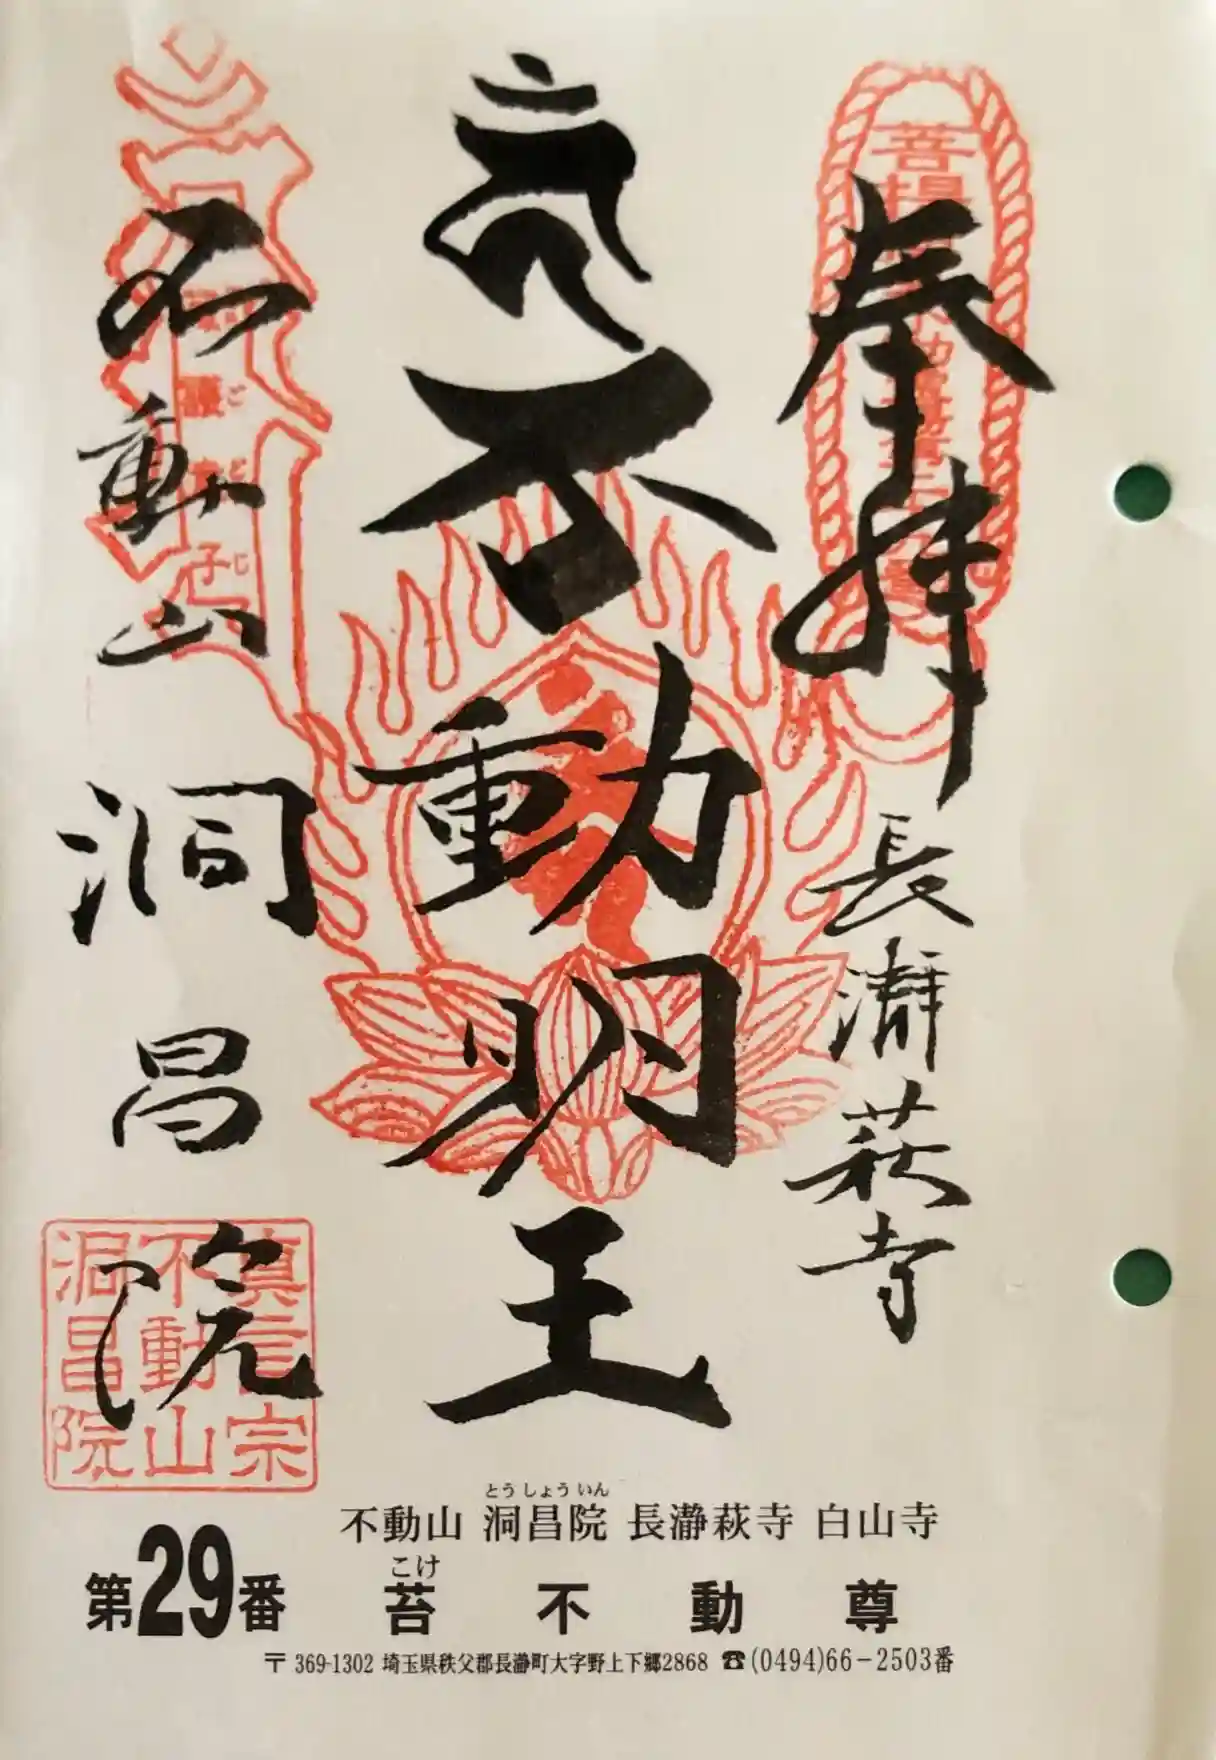 奉拝
長瀞萩寺
不動明王
不動山
洞昌院
真言宗
不動山
洞昌院
とうしょういん
不動山 洞昌院 長瀞萩寺 白山寺
第29番
こけ
苔不動尊
〒369-1302 埼玉県秩父郡長瀞町大字野上下郷2868 ☎(0494)66-2503番